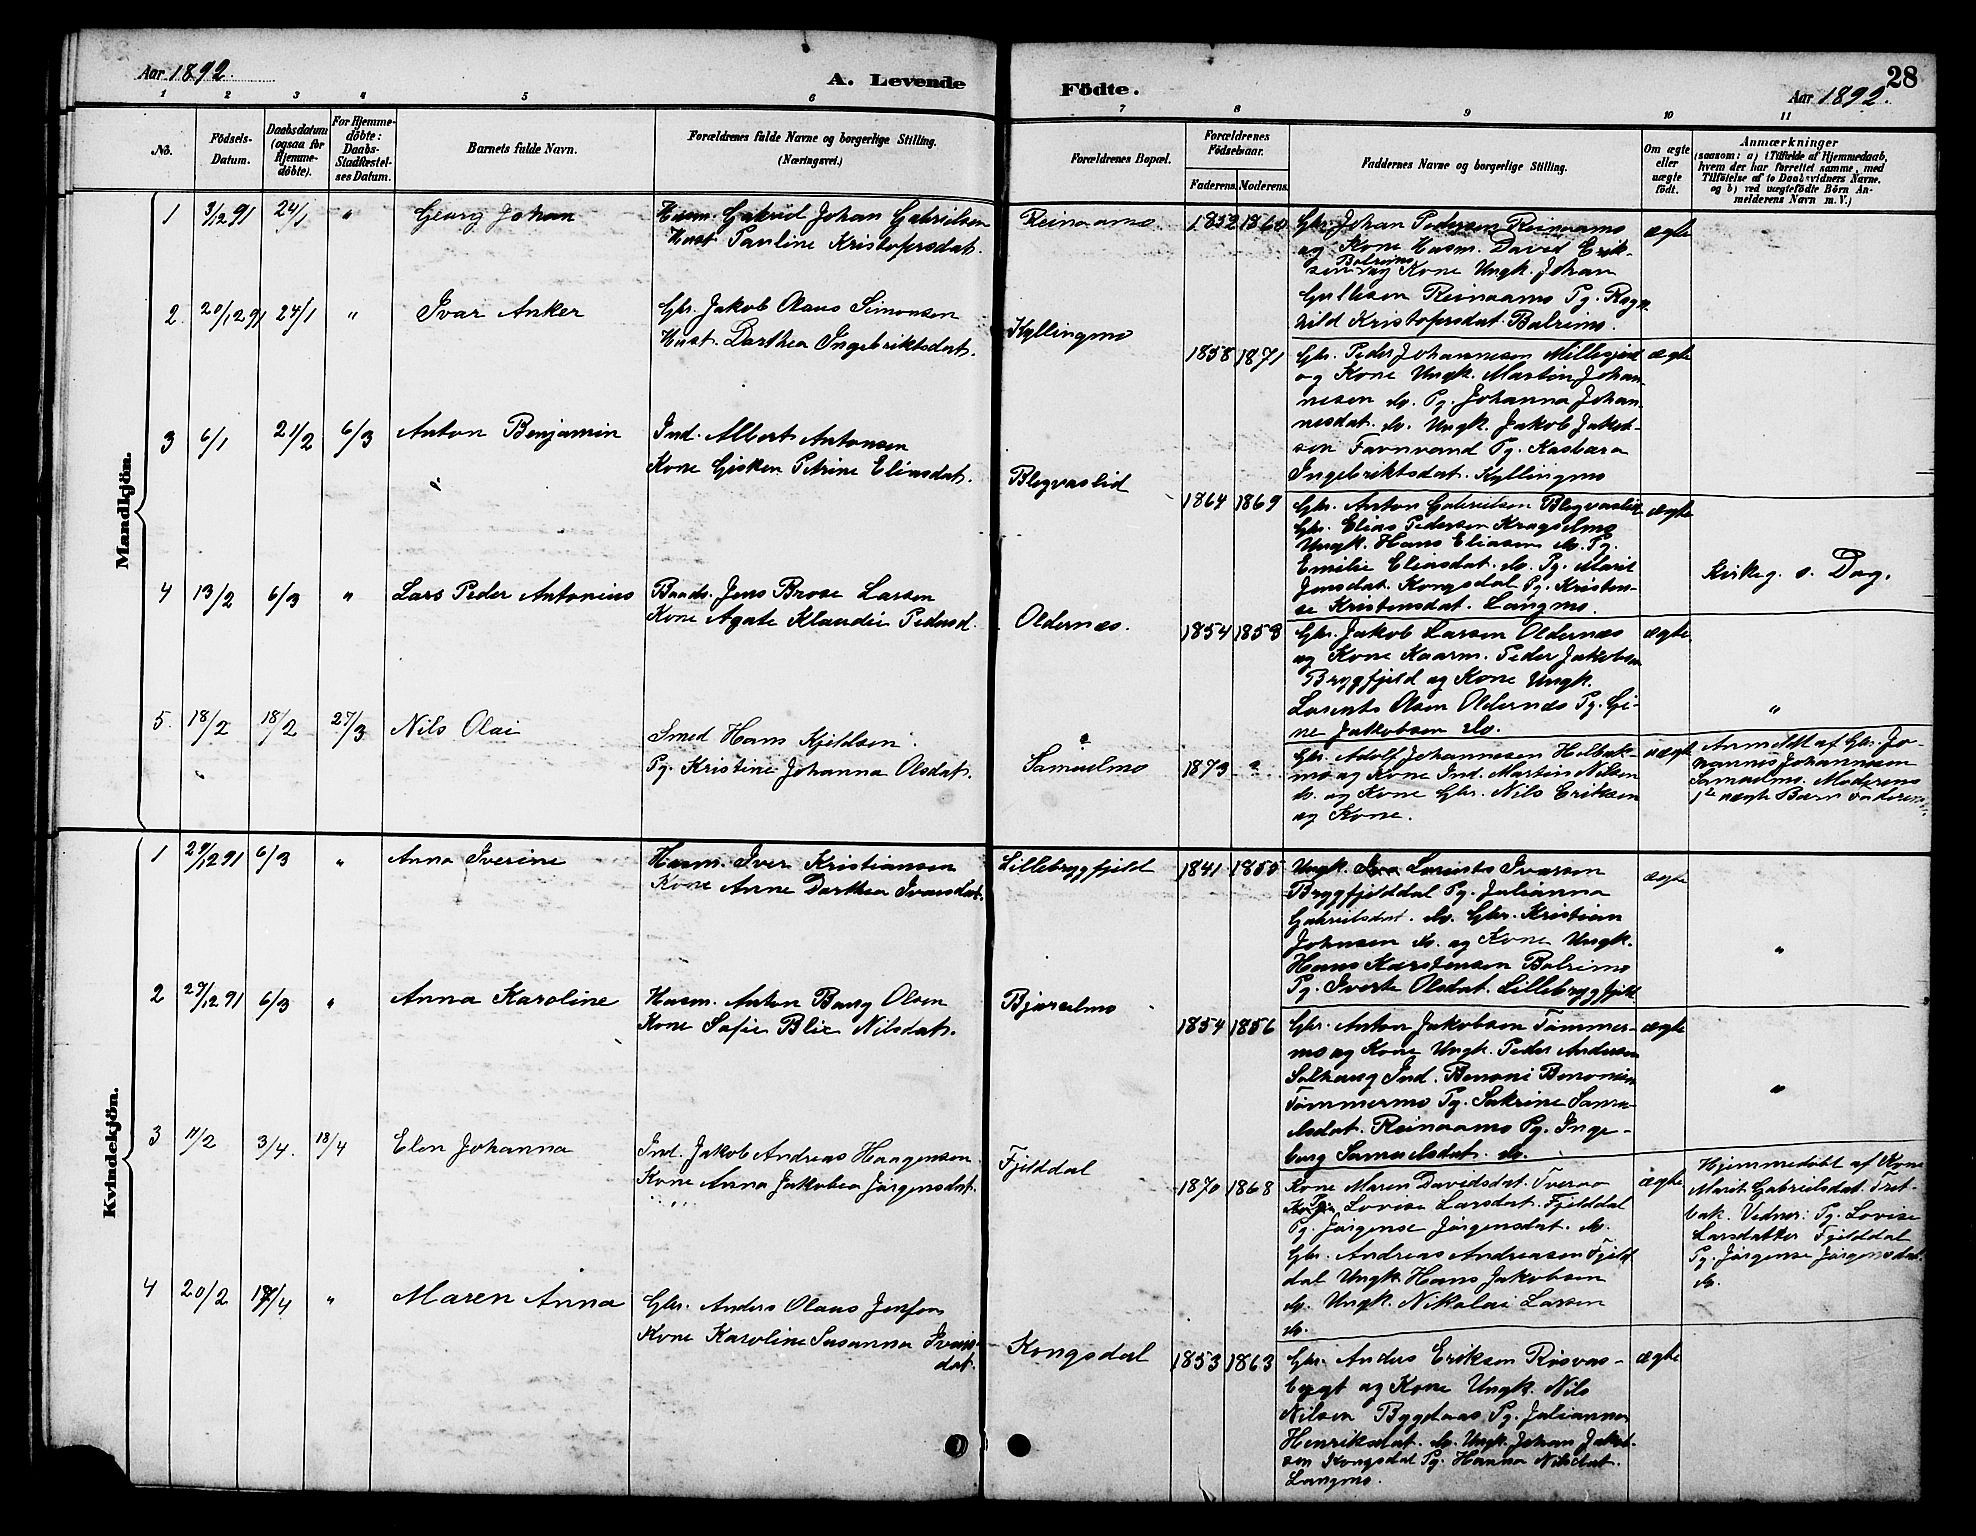 Aar 1892.
A. Levende Födte.
Aar 1892.
28
1 2 3 4 5 6 7 8 9 10 11
No.
Födsels-
Datum.
Daabsdatum
(ogsaa for
Hjemme-
döbte).
For Hjemme-
döbte:
Daabs-
Stadfæstel-
ses Datum.
Barnets fulde Navn.
Forældrenes fulde Navne og borgerlige Stilling.
(Næringsvei.)
Forældrenes Bopæl.
Forældrenes
Födselsaar.
Faderens. Moderens.
Faddernes Navne og borgerlige Stilling.
Om ægte
eller
uægte
födt.
Anmærkninger
(saasom: a) i Tilfælde af Hjemmedaab,
hvem der har forrettet samme, med
Tilföielse af to Daabsvidners Navne.
og b) ved uægtefödte Börn An-
melderens Navn m. V.)
Mandkjön.
1 3/12 91 24/1 " Georg Johan
Husm. Gabriel Johan Gabrielsen
Hust. Pauline Kristofersdat.
Reinaamo. 1852 1860
Gbr. Johan Pedersen Reinaamo
og Kone Husm. David Erik-
sen Bolrimo og Kone Ungk. Johan
Gullesen Reinaamo Pg. Ragn
hild Kristofersdat. Bolrimo.
ægte
2. 20/12 91 24/1 " Ivar Anker
Gbr. Jakob Olaus Simonsen
Hust. Dorthea Ingebriktsdat.
Kyllingmo
1858 1871
Gbr. Peder Johannesen Millesjord
og Kone Ungk. Martin Johan-
nesen do. Pg. Johanna Johan-
nesdat. do. Ungk. Jakob Jakob-
sen Favnvand Pg. Kasbara
Ingebriktsdat. Kyllingmo
ægte
3 6/1 21/2 6/3 Anton Benjamin
Ind. Albert Antonsen
Kone Gisken Petrine Eliasdat.
Blegvaslid
1864 1869
Gbr. Anton Gabrielsen Blegvaslid
Gbr. Elias Pedersen Kragselmo
Ungk. Hans Eliasen do. Pg.
Emilie Eliasdat. do. Pg. Marit
Jensdat. Kongsdal Pg. Kristen-
se Kristensdat. Langmo.
ægte
Kirkeg. s. Dag.
4 13/2 6/3 " Lars Peder Antonius
Baads. Jens Brose Larsen
Kone Agate Klaudie Pedersd.
Oldernæs.
1854 1858
Gbr. Jakob Larsen Oldernæs
og Kone Kaarm. Peder Jakobsen
Brygfjeld og Kone Ungk.
Lorents Olsen Oldernæs Pg. Gi-
ne Jakobsen do.
ægte
"
5. 18/2 18/2 27/3 Nils Olai
Smed Hans Kjeldsen
Pg. Kristine Johanna Olsdat.
Samuelmo 1873
Gbr. Adolf Johannesen Holbæk-
mo og Kone Ind. Martin Nilsen
do. og Kone Gbr. Nils Eriksen
og Kone.
uægte
Anmeldt af Gbr. Jo-
hannes Johannesen
Samuelmo. Moderens
1ste uægte Barn
Kvindekjön.
1 29/12 91 6/3 " Anna Iverine
Husm. Iver Kristiansen
Kone Anne Dorthea Ivarsdat.
Lillebrygfjeld 1841 1855
Ungk. Lorents Ivarsen
Brygfjelddal Pg. Julianna
Gabrielsdat. do. Gbr. Kristian
Johnsen do. og Kone Ungk.
Hans Karstensen Bolrimo
Pg. Iverte Olsdat. Lillebrygfjeld
ægte
"
2 27/12 91 6/3 " Anna Karoline
Husm. Anton Bang Olsen
Kone Sofie Blix Nilsdat.
Bjurselmo
1854 1856
Gbr. Anton Jakobsen Tømmer-
mo og Kone Ungk. Peder Andersen
Solhaug Ind. Benoni Benonisen
Tømmermo Pg. Sakrine Samu-
elsdat. Reinaamo Pg. Inge-
borg Samuelsdat. do.
ægte
"
3 11/2 3/4. 18/4 Elen Johanna
Ind. Jakob Andreas Haagensen
Kone Anna Jakobea Jørgensdat.
Fjelddal
1870 1868
Kone Maren Davidsdat. Tveraa
Pg. Lovise Larsdat. Fjelddal
Pg. Jørgense Jørgensdat. do.
Gbr. Andreas Andreasen Fjeld
dal Ungk. Hans Jakobsen
do. Ungk. Nikolai Larsen
do.
ægte
Hjemmedøbt af Kone
Marit Gabrielsdat. Tret-
bak. Vidner: Pg. Lovise
Larsdatter Fjelddal
Pg. Jørgense Jørgensdat.
do.
4 20/2 17/4 " Maren Anna
Gbr. Anders Olaus Jensen
Kone Karoline Susanna Ivars-
dat.
Kongsdal 1853 1863
Gbr. Anders Eriksen Røsvas-
bugt og Kone Ungk. Nils
Nilsen Bygdaas Pg. Julianna
Henriksdat. do. Ungk. Johan Jakob-
sen Kongsdal Pg. Hanna Nilsdat.
Langmo.
ægte